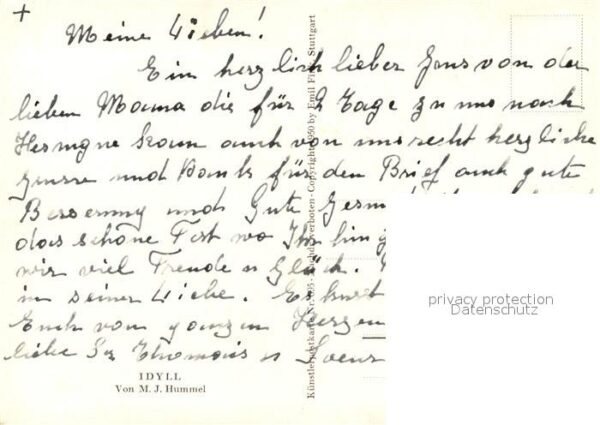 +
Meine Lieben!
Ein herzlich lieber Gruss von der
lieben Mama die für 8 Tage zu uns nach
kam auch von uns recht herzliche
Grüsse und Dank für den Brief auch gute
Besserung und Gute
das schöne Fest wo Ihr hin
wir viel Freude u Glück.
in seiner Liebe. Es
Euch von ganzen Herzen
liebe
IDYLL
Von M. J. Hummel
Künstlerpostkarte Nr. - Nachdruck verboten - Copyright 1950 by Emil Fink, Stuttgart
privacy protection
Datenschutz